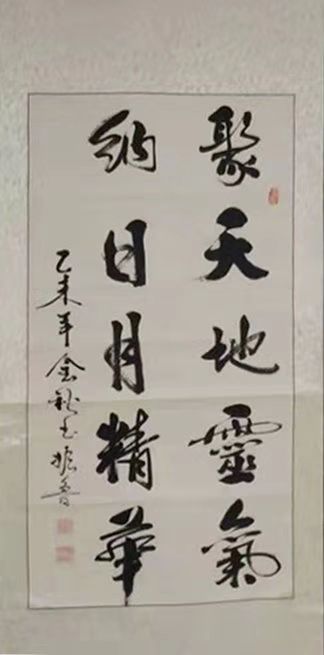 聚天地靈氣
納日月精華
乙未年金秋玉振魯